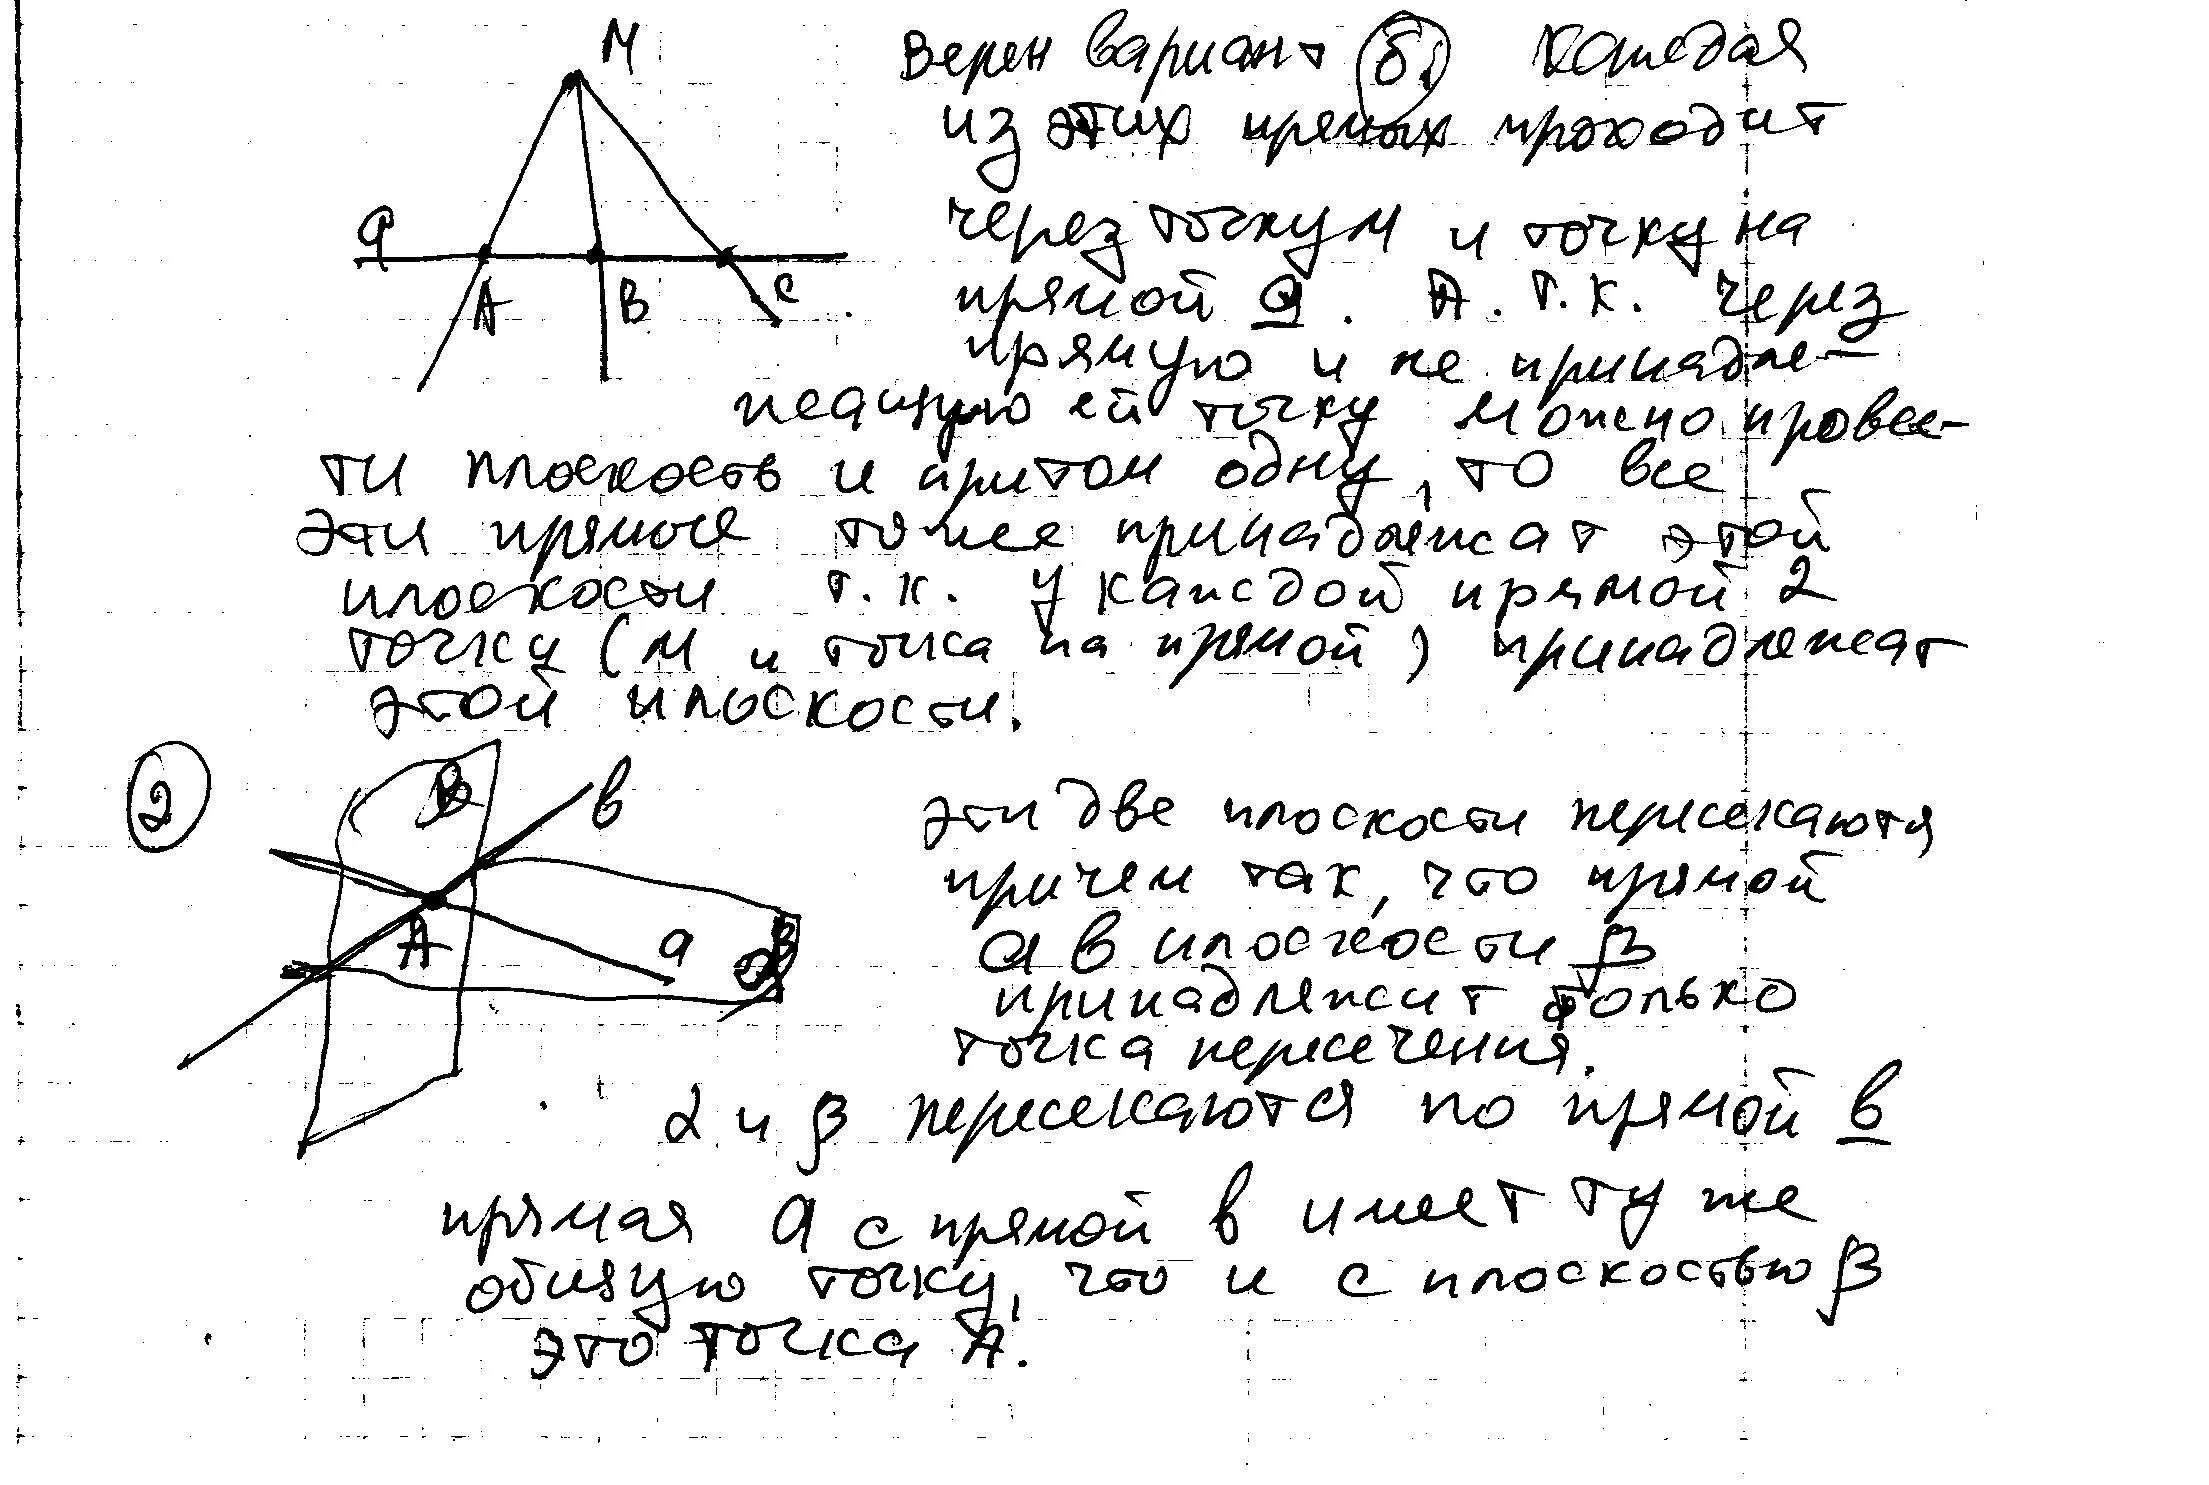 М
а
А
В
с
Верен вариант б.) Каждая
из этих прямых проходит
через точку М и точку на
прямой а. А. т.к. через
прямую и не принадле-
жащую ей точку можно провес-
ти плоскость и притом одну, то все
эти прямые тоже принадлежат этой
плоскости т.к. у каждой прямой 2
точки (М и точка на прямой) принадлежат
этой плоскости.
2
в
А
а
эти две плоскости пересекаются,
причем так, что прямой
а в плоскости β
принадлежит только
точка пересечения.
α и β пересекаются по прямой в
прямая а с прямой в имеет ту же
общую точку, что и с плоскостью β
это точка А.